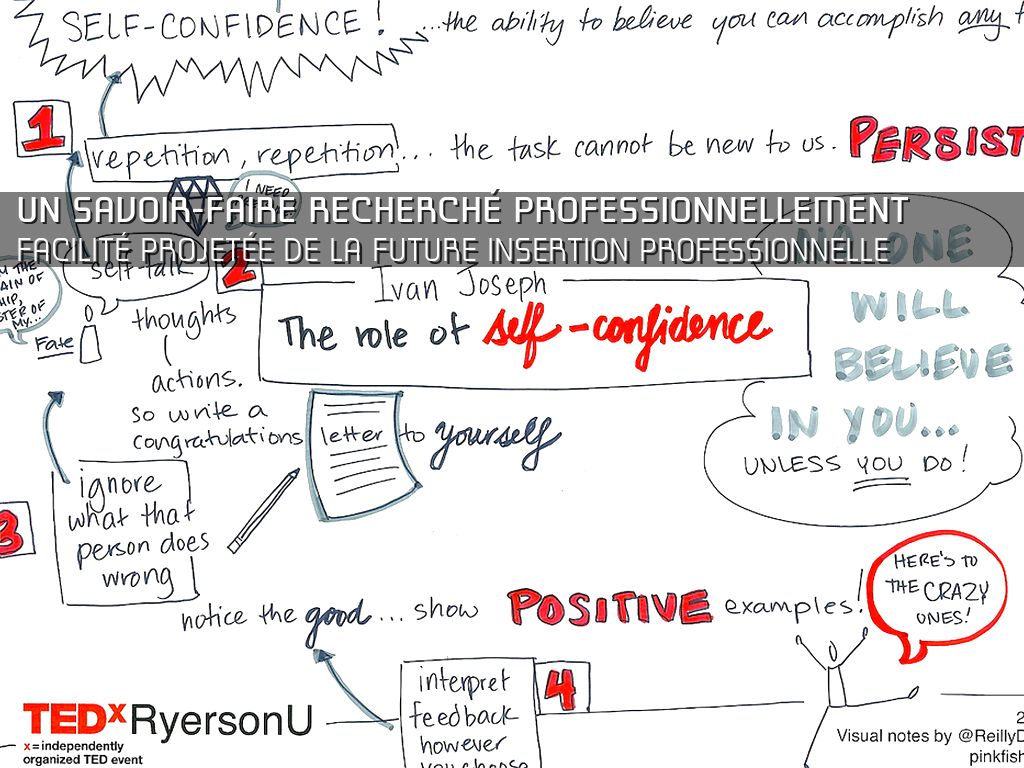 SELF-CONFIDENCE!
...the ability to believe you can accomplish any
1
repetition, repetition... the task cannot be new to us. PERSIST
I NEED
UN SAVOIR-FAIRE RECHERCHÉ PROFESSIONNELLEMENT
FACILITÉ PROJETÉE DE LA FUTURE INSERTION PROFESSIONNELLE
NO ONE
WILL
BELIEVE
IN YOU...
UNLESS YOU DO!
self-talk
2
THE
OF
MY...
Fate
thoughts
actions.
so write a
congratulations letter to yourself
Ivan Joseph
The role of self-confidence
3
ignore
what that
person does
wrong
notice the good... show POSITIVE examples!
HERE'S TO
THE CRAZY
ONES!
4
interpret
feedback
however
you choose
TEDxRyersonU
x = independently
organized TED event
2
Visual notes by @ReillyD
pinkfish